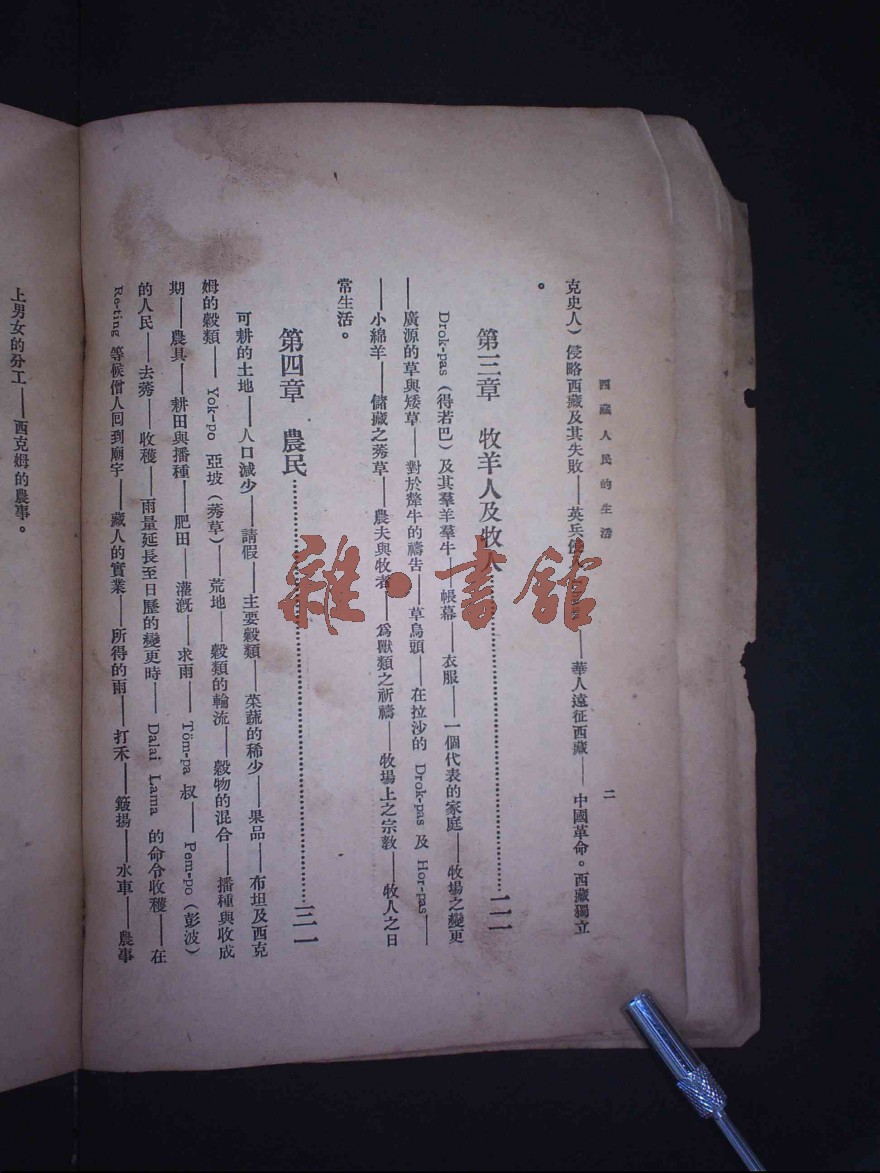 西藏人民的生活
二
克史人）侵略西藏及其失敗——英兵 ——華人遠征西藏——中國革命。西藏獨立
。
第三章　牧羊人及牧人……二一
Drok-pas（得若巴）及其羣羊羣牛——帳幕——衣服——一個代表的家庭——牧場之變更
——廣源的草與矮草——對於犛牛的禱告——草烏頭——在拉沙的 Drok-pas 及 Hor-pas——
——小綿羊——儲藏之莠草——農夫與牧者——爲獸類之祈禱——牧場上之宗教——牧人之日
常生活。
第四章　農民……三一
可耕的土地——人口減少——請假——主要穀類——菜蔬的稀少——果品——布坦及西克
姆的穀類——Yok-po 亞坡（莠草）——荒地——穀類的輪流——穀物的混合——播種與收成
期——農具——耕田與播種——肥田——灌溉——求雨——Töm-pa 叔——Pem-po（彭波）
的人民——去莠——收穫——雨量延長至日歷的變更時——Dalai Lama 的命令收穫——在
Re-ting 等候僧人回到廟宇——藏人的實業——所得的雨——打禾——簸揚——水車——農事
上男女的分工——西克姆的農事。
雜·書館